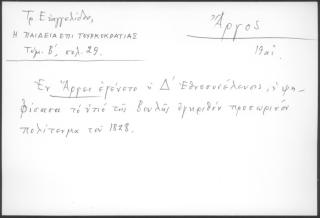 Τρ. Ευαγγελίδου,
Η ΠΑΙΔΕΙΑ ΕΠΙ ΤΟΥΡΚΟΚΡΑΤΙΑΣ
Τόμ. Β', σελ. 29.
Ἄργος
19 αἰ.
Ἐν Ἄργει ἐγένετο ἡ Δ' Ἐθνοσυνέλευσις, ἡ ψη-
φίσασα τὸ ὑπὸ τῆς βουλῆς ἐγκριθὲν προσωρινὸν
πολίτευμα τοῦ 1828.